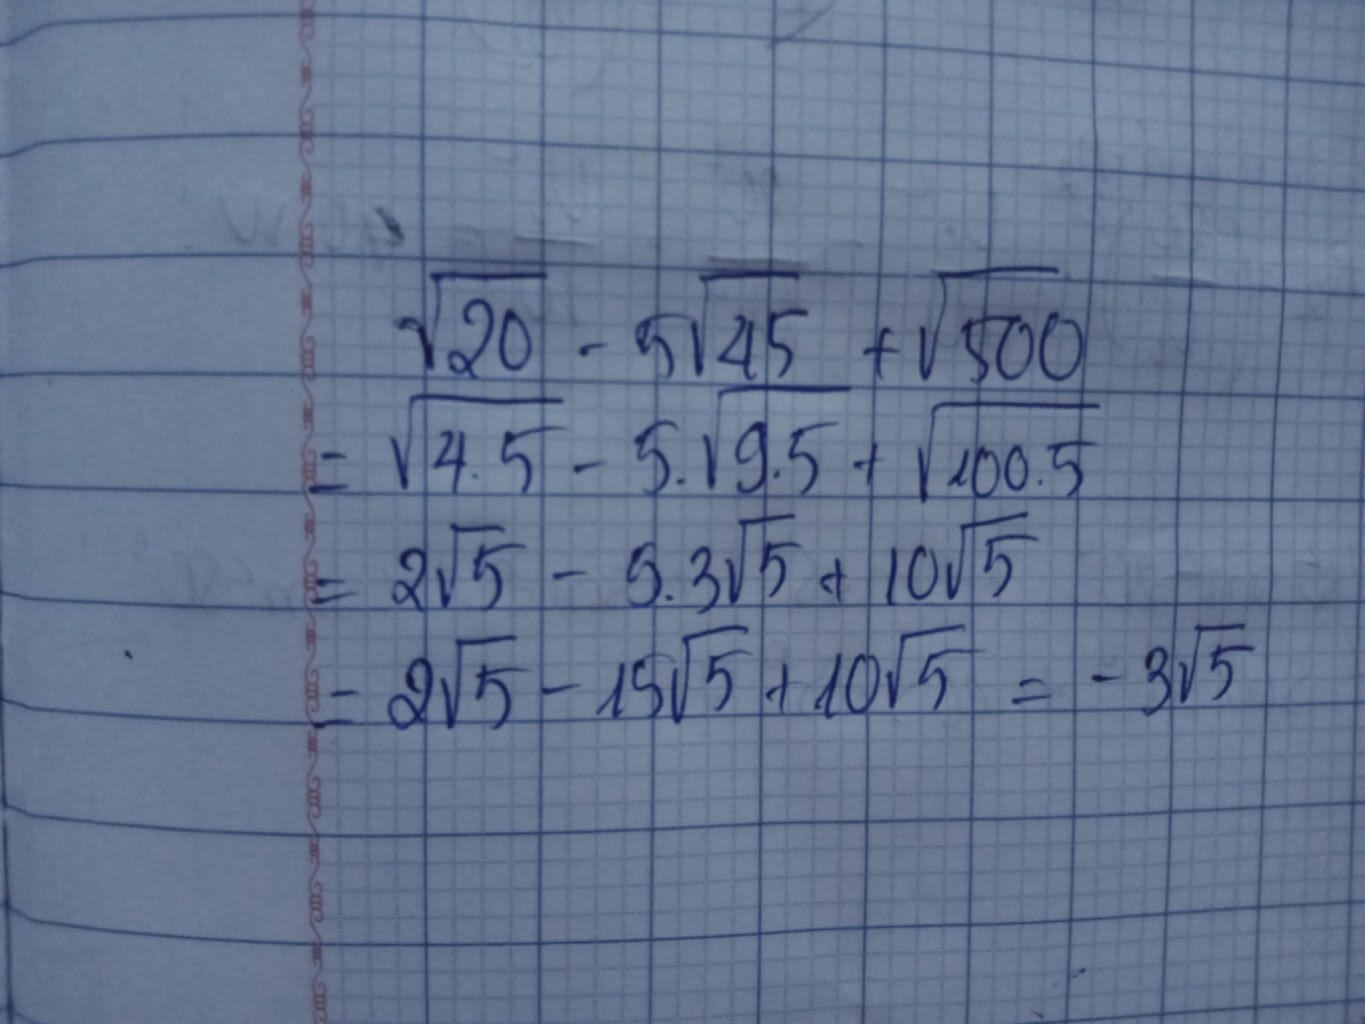 √20 - 5√45 + √500
= √4.5 - 5.√9.5 + √100.5
= 2√5 - 5.3√5 + 10√5
= 2√5 - 15√5 + 10√5 = - 3√5